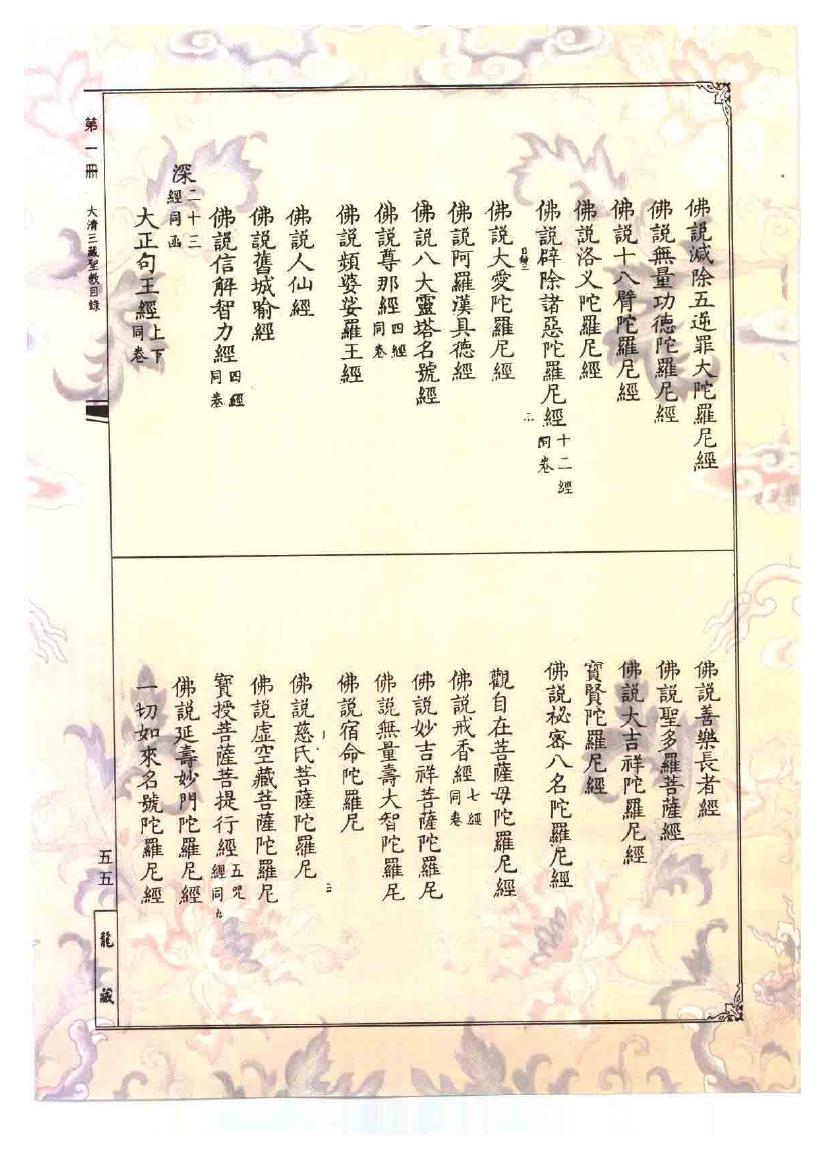 佛說滅除五逆罪大陀羅尼經
佛說無量功德陀羅尼經
佛說十八臂陀羅尼經
佛說洛叉陀羅尼經
佛說辟除諸惡陀羅尼經 十二經同卷
佛說大愛陀羅尼經
佛說阿羅漢具德經
佛說八大靈塔名號經
佛說尊那經 四經同卷
佛說頻婆娑羅王經
佛說人仙經
佛說舊城喻經
佛說信解智力經 四經同卷
深 二十三經同函
大正句王經 上下同卷
佛說善樂長者經
佛說聖多羅菩薩經
佛說大吉祥陀羅尼經
寶賢陀羅尼經
佛說祕密八名陀羅尼經
觀自在菩薩母陀羅尼經
佛說戒香經 七經同卷
佛說妙吉祥菩薩陀羅尼
佛說無量壽大智陀羅尼
佛說宿命陀羅尼
佛說慈氏菩薩陀羅尼
佛說虛空藏菩薩陀羅尼
寶授菩薩菩提行經 五咒經同
佛說延壽妙門陀羅尼經
一切如來名號陀羅尼經
第一冊 大清三藏聖教目錄
五五
龍藏